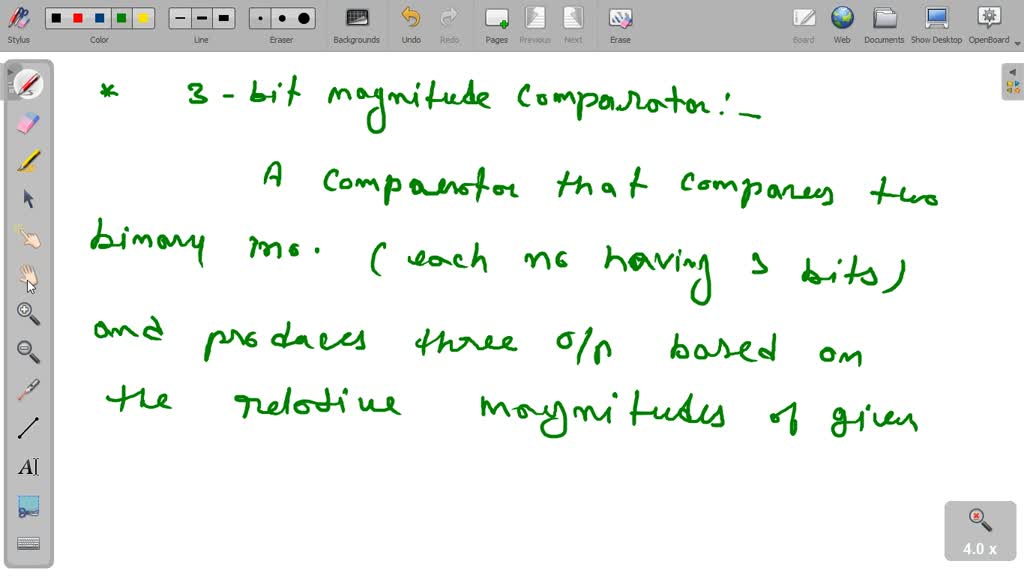 Stylus
Color
Line
Eraser
Backgrounds
Undo
Redo
Pages
Previous
Next
Erase
Board
Web
Documents
Show Desktop
OpenBoard
* 3-bit magnitude comparator:-
A comparator that compares two
binary no. (each no having 3 bits)
and produces three o/p based on
the relative magnitudes of given
4.0 x